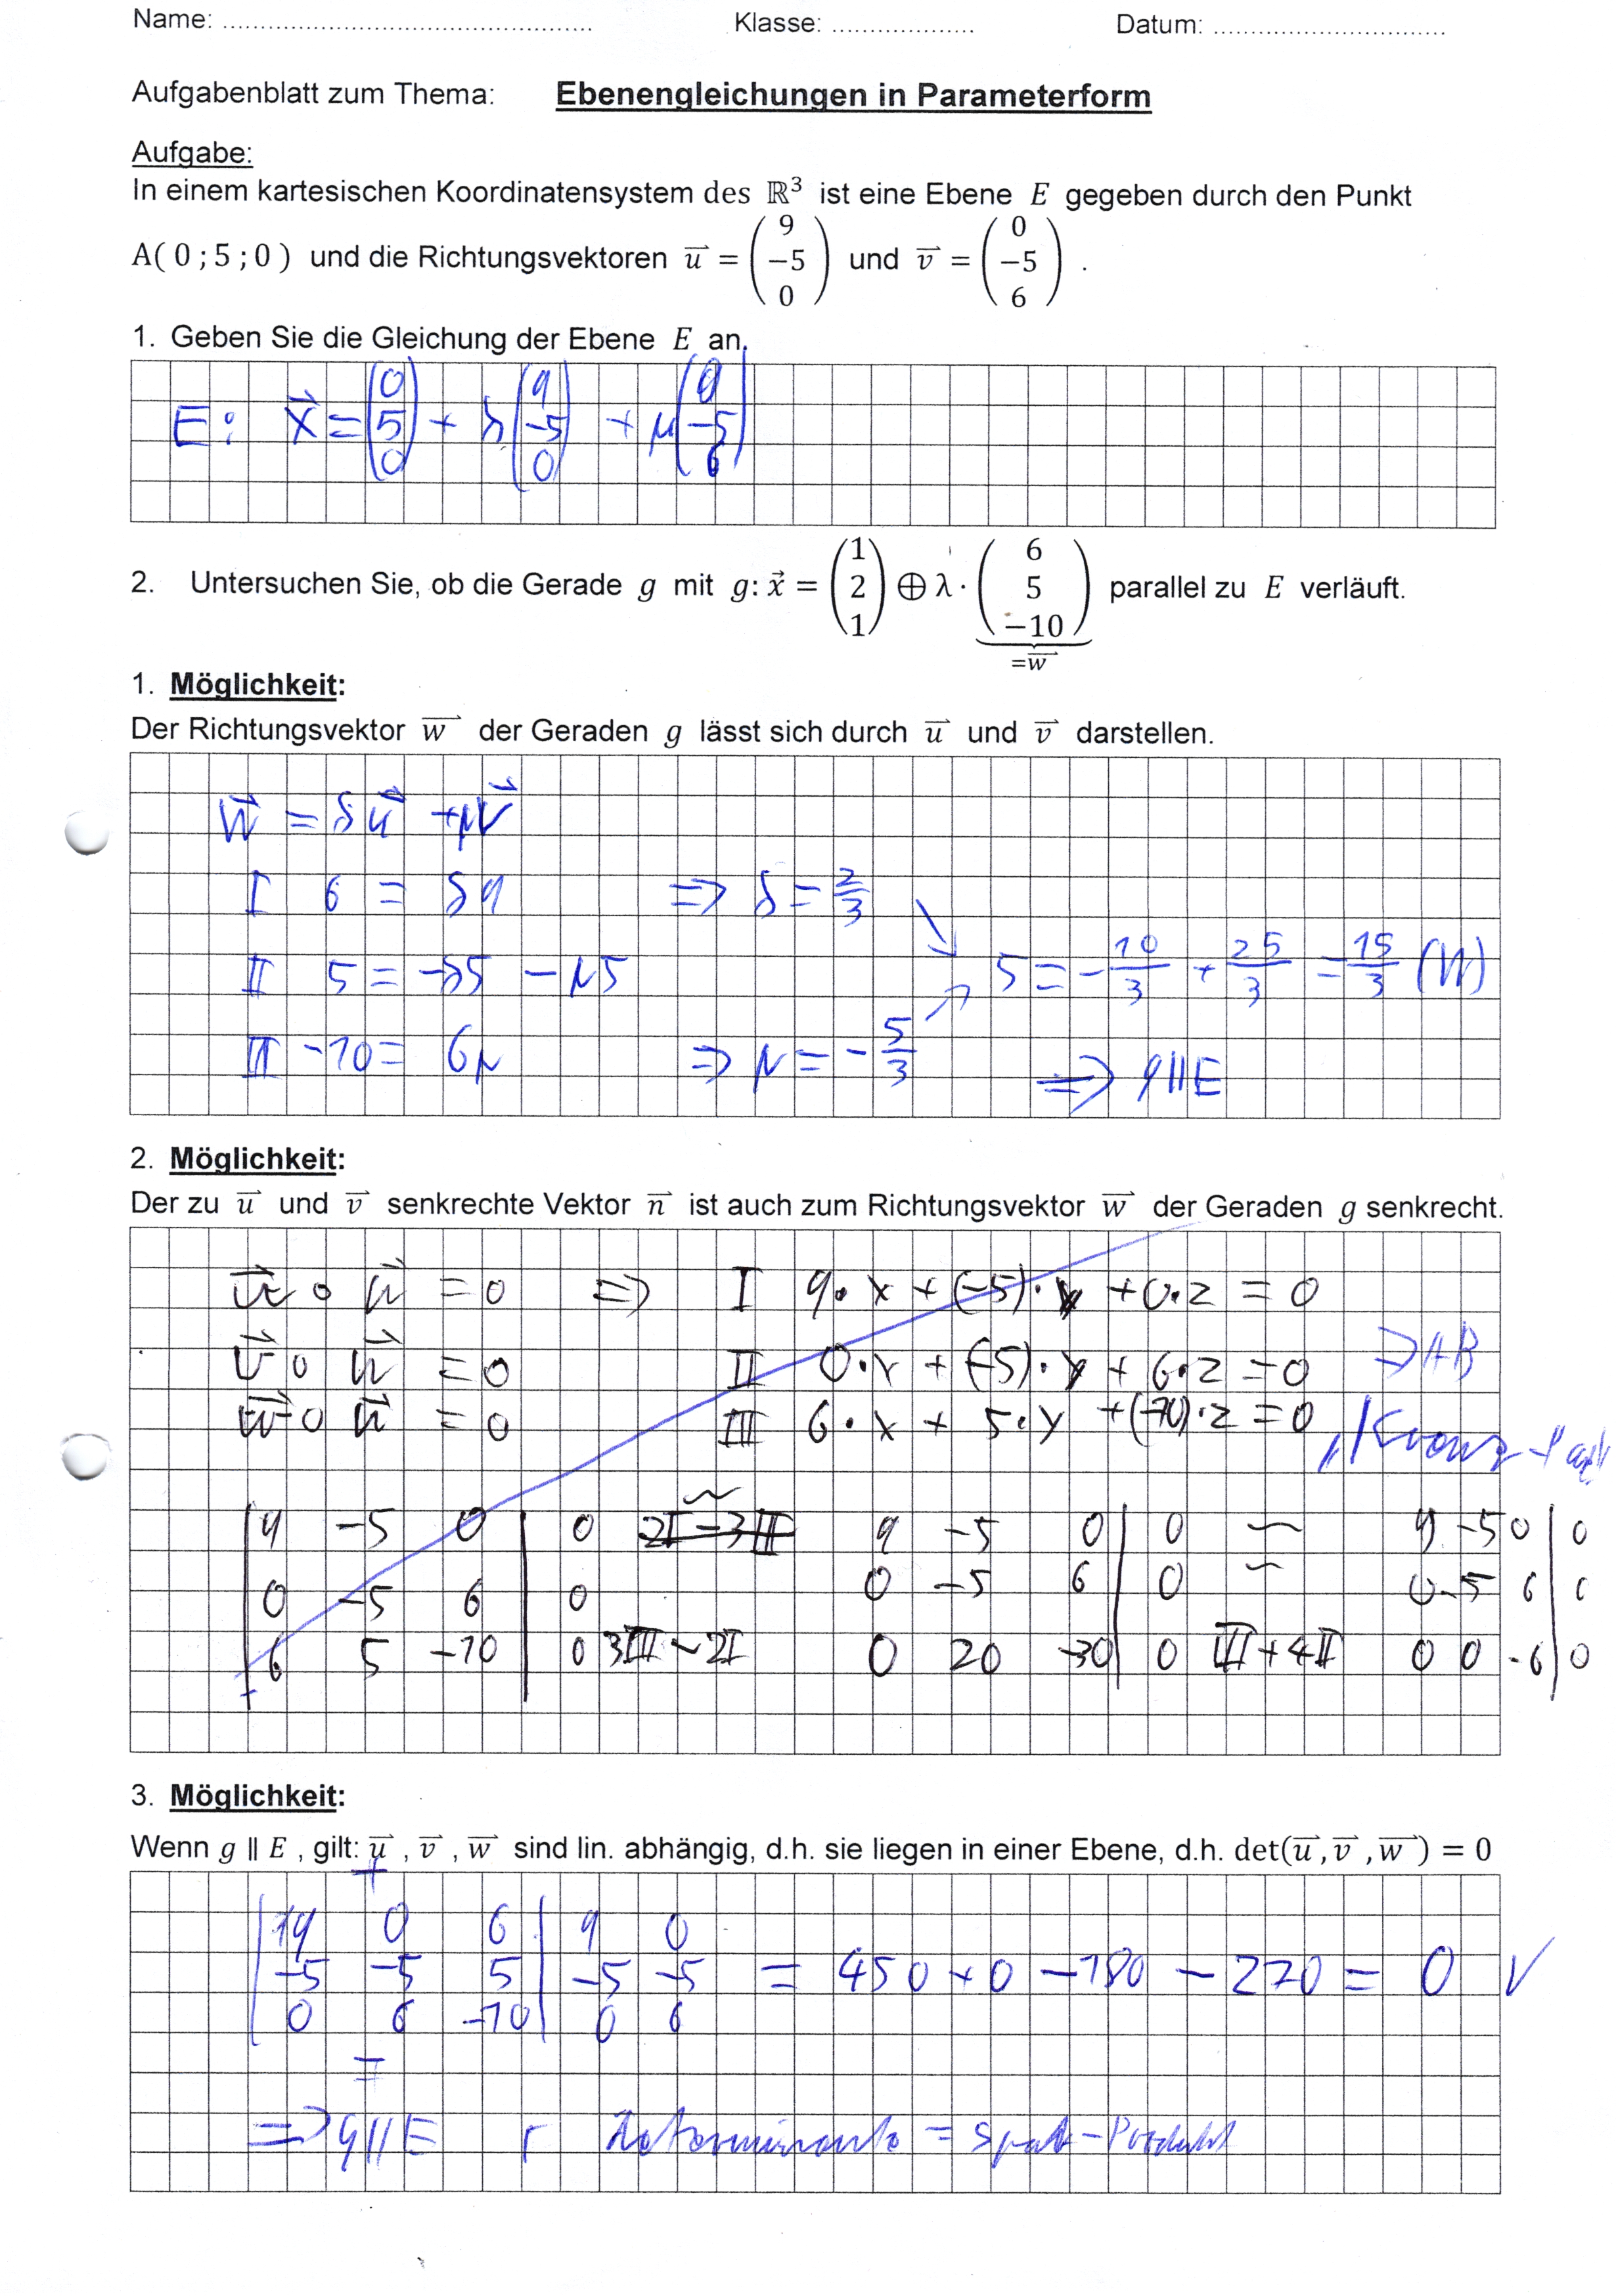 Name: ................................................ Klasse: ................... Datum: ..............................
Aufgabenblatt zum Thema: Ebenengleichungen in Parameterform
Aufgabe:
In einem kartesischen Koordinatensystem des ℝ³ ist eine Ebene E gegeben durch den Punkt
A( 0 ; 5 ; 0 ) und die Richtungsvektoren u⃗ = (9 −5 0) und v⃗ = (0 −5 6) .
1. Geben Sie die Gleichung der Ebene E an.
E: x⃗ = (0 5 0) + λ (9 −5 0) + μ (0 −5 6)
2. Untersuchen Sie, ob die Gerade g mit g: x⃗ = (1 2 1) ⊕ λ · (6 5 −10) parallel zu E verläuft.
=w⃗
1. Möglichkeit:
Der Richtungsvektor w⃗ der Geraden g lässt sich durch u⃗ und v⃗ darstellen.
w⃗ = λu⃗ + μv⃗
I 6 = λ9 => λ = 2/3
II 5 = −λ5 − μ5 5 = −10/3 + 25/3 = 15/3 (W)
III −10 = 6μ => μ = −5/3 => g||E
2. Möglichkeit:
Der zu u⃗ und v⃗ senkrechte Vektor n⃗ ist auch zum Richtungsvektor w⃗ der Geraden g senkrecht.
u⃗ ∘ n⃗ = 0 => I 9·x + (−5)·y + 0·z = 0
v⃗ ∘ n⃗ = 0 II 0·x + (−5)·y + 6·z = 0 => AB
w⃗ ∘ n⃗ = 0 III 6·x + 5·y + (−10)·z = 0
9 −5 0 | 0 2I−3III 9 −5 0 | 0 ~ 9 −5 0 | 0
0 −5 6 | 0 0 −5 6 | 0 ~ 0 −5 6 | 0
6 5 −10 | 0 3III−2I 0 20 −30 | 0 III+4II 0 0 −6 | 0
3. Möglichkeit:
Wenn g ∥ E , gilt: u⃗ , v⃗ , w⃗ sind lin. abhängig, d.h. sie liegen in einer Ebene, d.h. det(u⃗ , v⃗ , w⃗ ) = 0
+
| 9 0 6 | 9 0
| −5 −5 5 | −5 −5 = 450 + 0 − 180 − 270 = 0 √
| 0 6 −10 | 0 6
=> g||E Determinante = Spat-Produkt